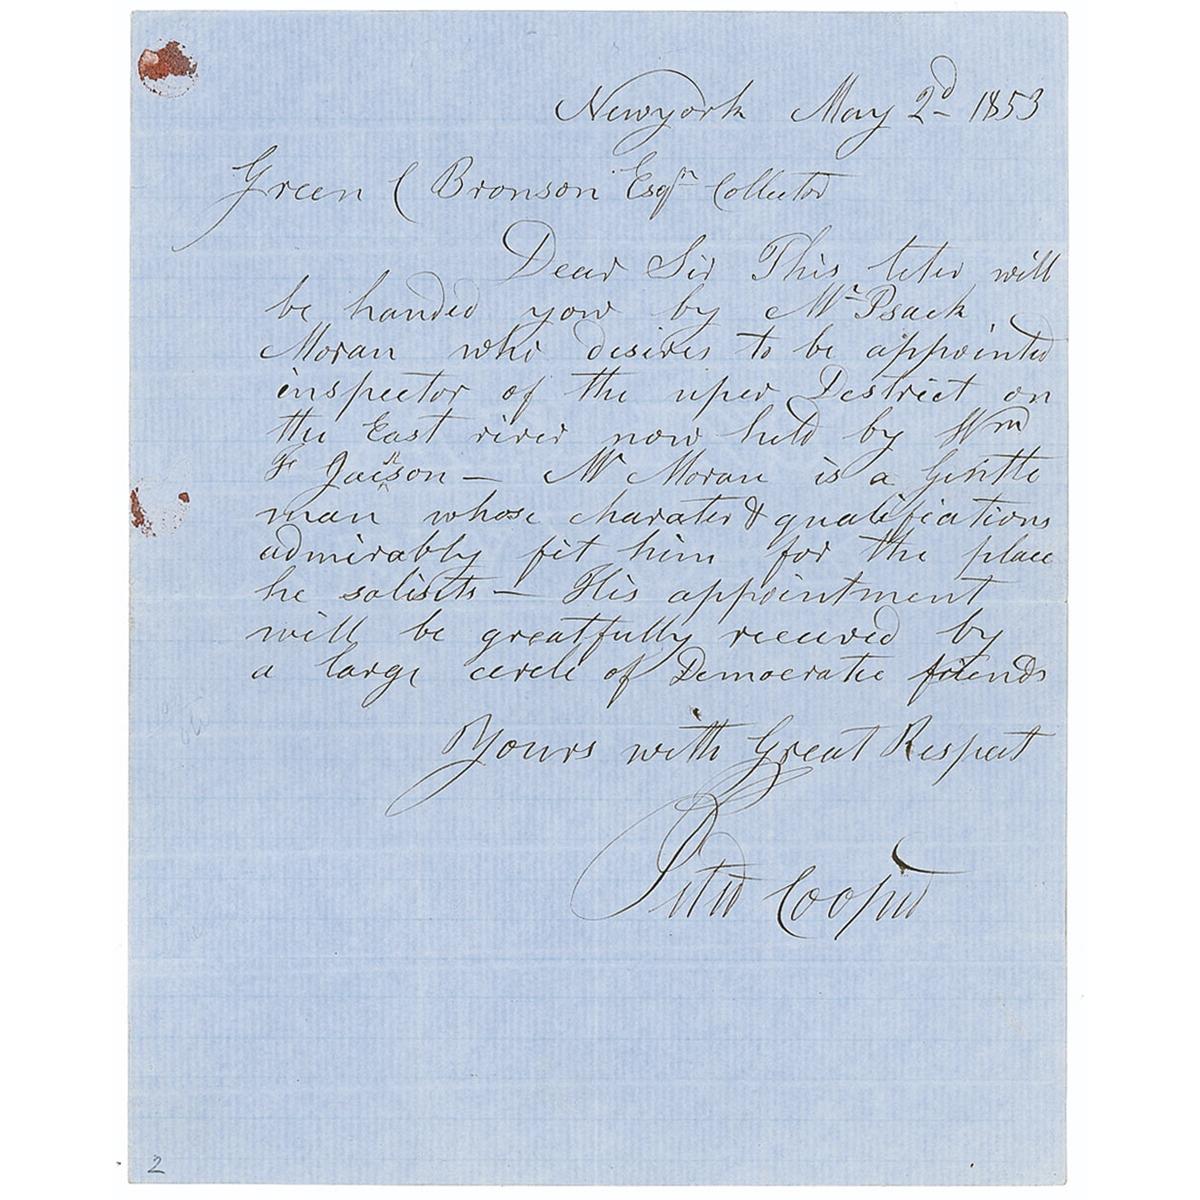 Newyork May 2d 1853
Green C Bronson Esqr Collector
Dear Sir This leter will
be handed yow by Mr Isack
Moran who desires to be appointed
inspector of the uper District on
the East river now held by Wm
F Jackson — Mr Moran is a Gentle
man whose charater & qualifications
admirably fit him for the place
he solisits — His appointment
will be greatfully received by
a large circle of Democratic friends
Yours with Great Respect
Peter Cooper
2